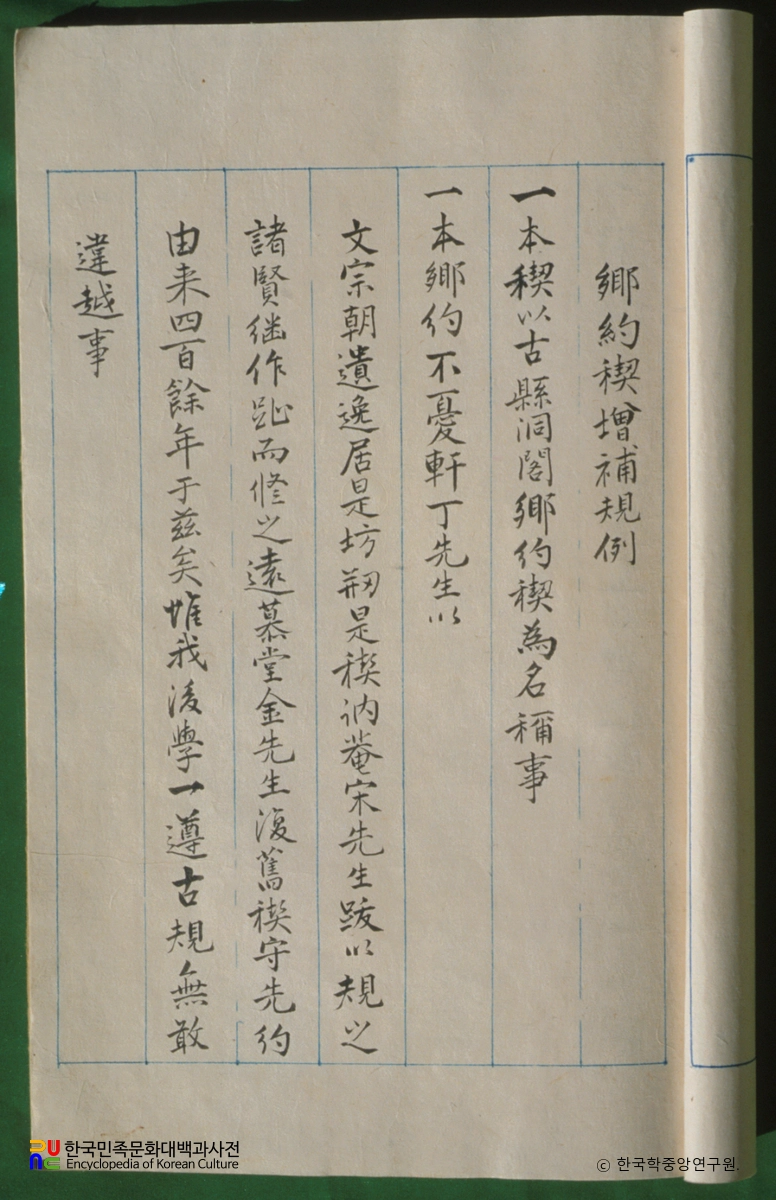 鄉約稧增補規例
一本稧以古縣洞閣鄉約稧為名稱事
一本鄉約不憂軒丁先生以
文宗朝遺逸居是坊刱是稧訥菴宋先生跋以規之
諸賢継作趾而修之遠慕堂金先生復舊稧守先約
由来四百餘年于茲矣惟我後學一遵古規無敢
違越事
한국민족문화대백과사전
Encyclopedia of Korean Culture
ⓒ 한국학중앙연구원.